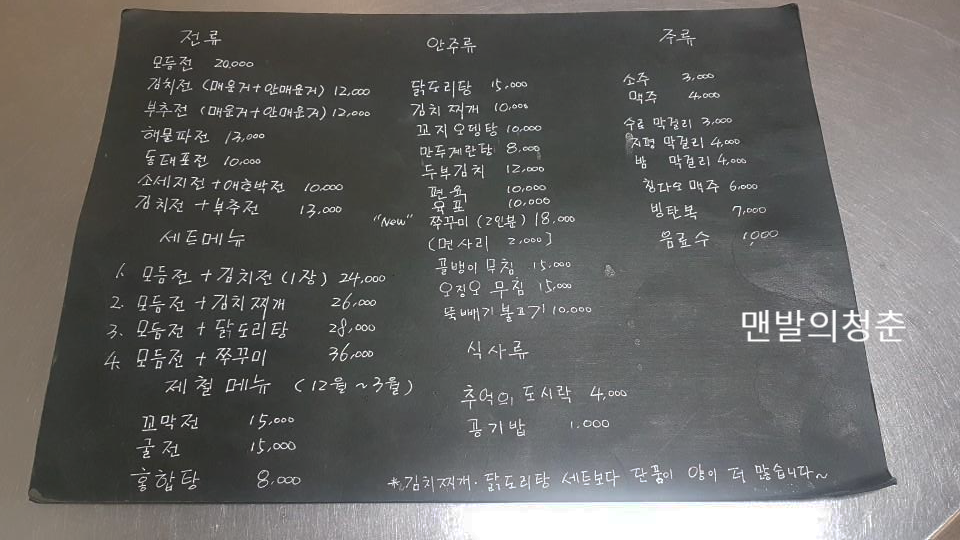 전류
모듬전 20,000
김치전 (매운거+안매운거) 12,000
부추전 (매운거+안매운거) 12,000
해물파전 13,000
동태포전 10,000
소세지전 + 애호박전 10,000
김치전 + 부추전 13,000
세트메뉴
1. 모듬전 + 김치전 (1장) 24,000
2. 모듬전 + 김치찌개 26,000
3. 모듬전 + 닭도리탕 28,000
4. 모듬전 + 쭈꾸미 36,000
제철 메뉴 (12월 ~ 3월)
꼬막전 15,000
굴전 15,000
홍합탕 8,000
안주류
닭도리탕 15,000
김치찌개 10,000
꼬지오뎅탕 10,000
만두계란탕 8,000
두부김치 12,000
편육 10,000
육포 10,000
"New" 쭈꾸미 (2인분) 18,000
(면사리 2,000)
골뱅이 무침 15,000
오징어 무침 15,000
뚝빼기 불고기 10,000
식사류
추억의 도시락 4,000
공기밥 1,000
*김치찌개. 닭도리탕 세트보다 단품이 양이 더 많습니다~
주류
소주 3,000
맥주 4,000
수료 막걸리 3,000
지평 막걸리 4,000
밤 막걸리 4,000
칭다오 맥주 6,000
빙탄복 7,000
음료수 1,000
맨발의청춘